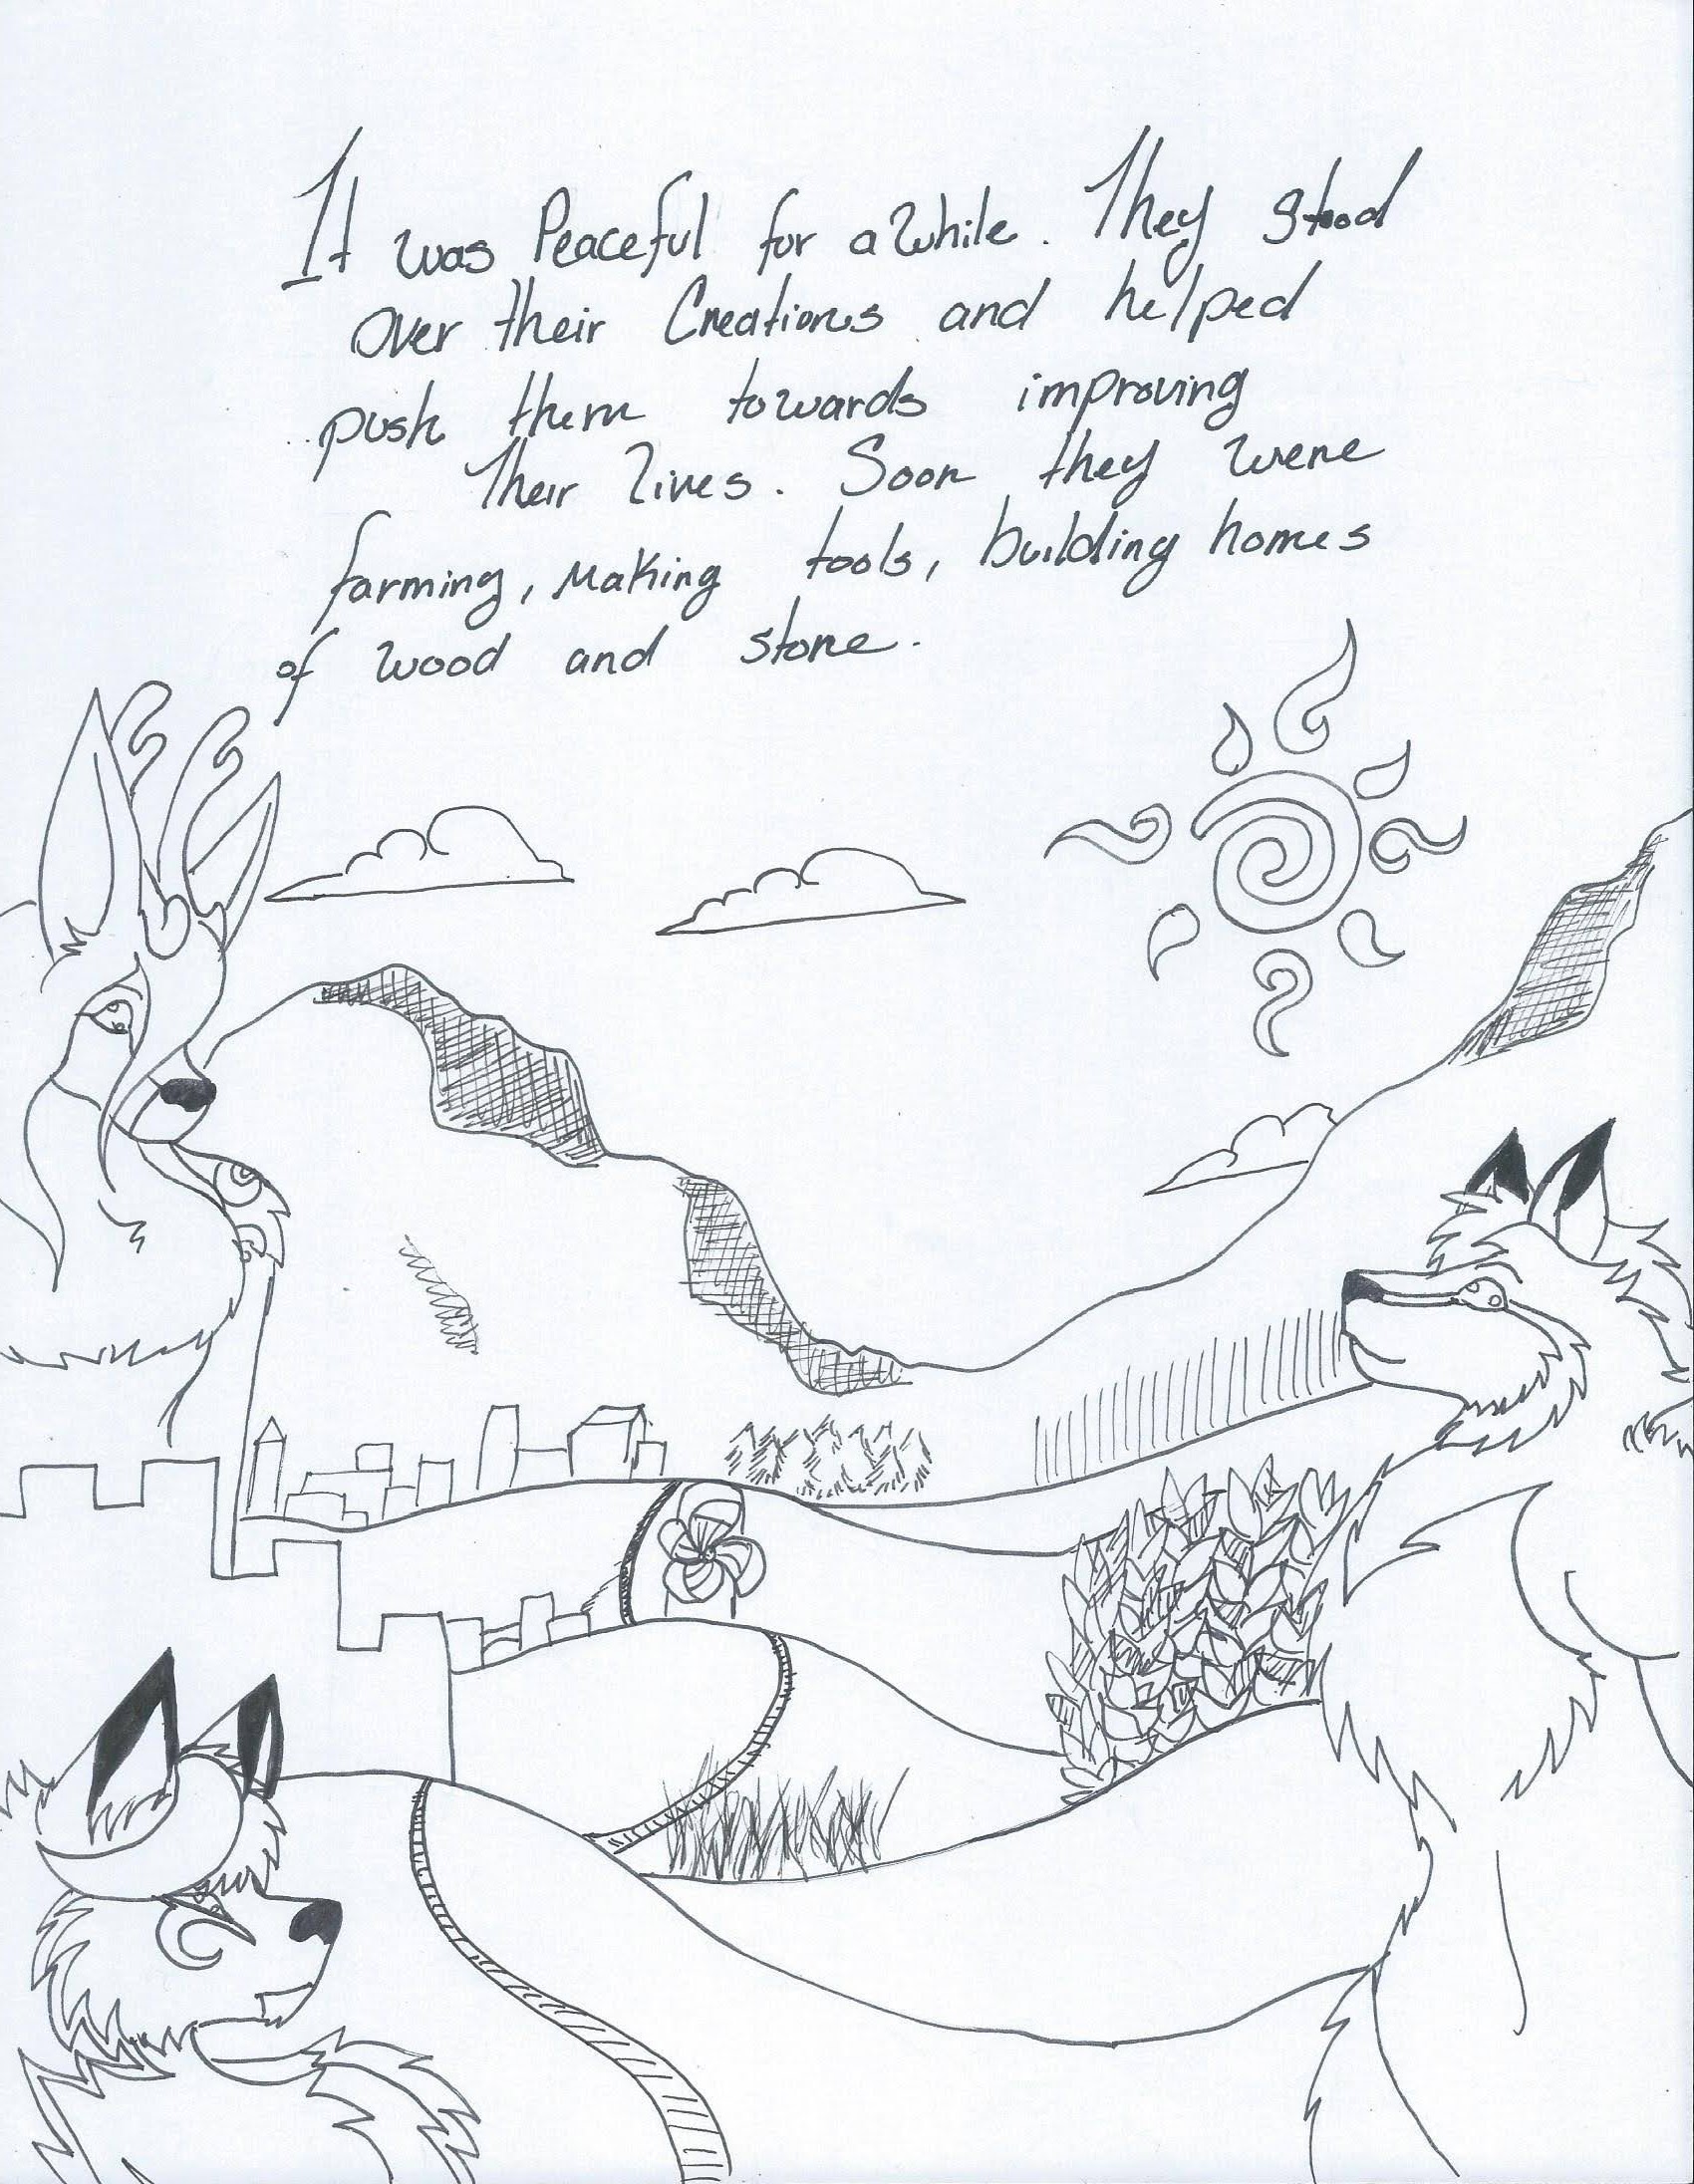 It was Peaceful for a while. They stood
Over their Creations and helped
push them towards improving
Their lives. Soon they were
farming, Making tools, building homes
of wood and stone.